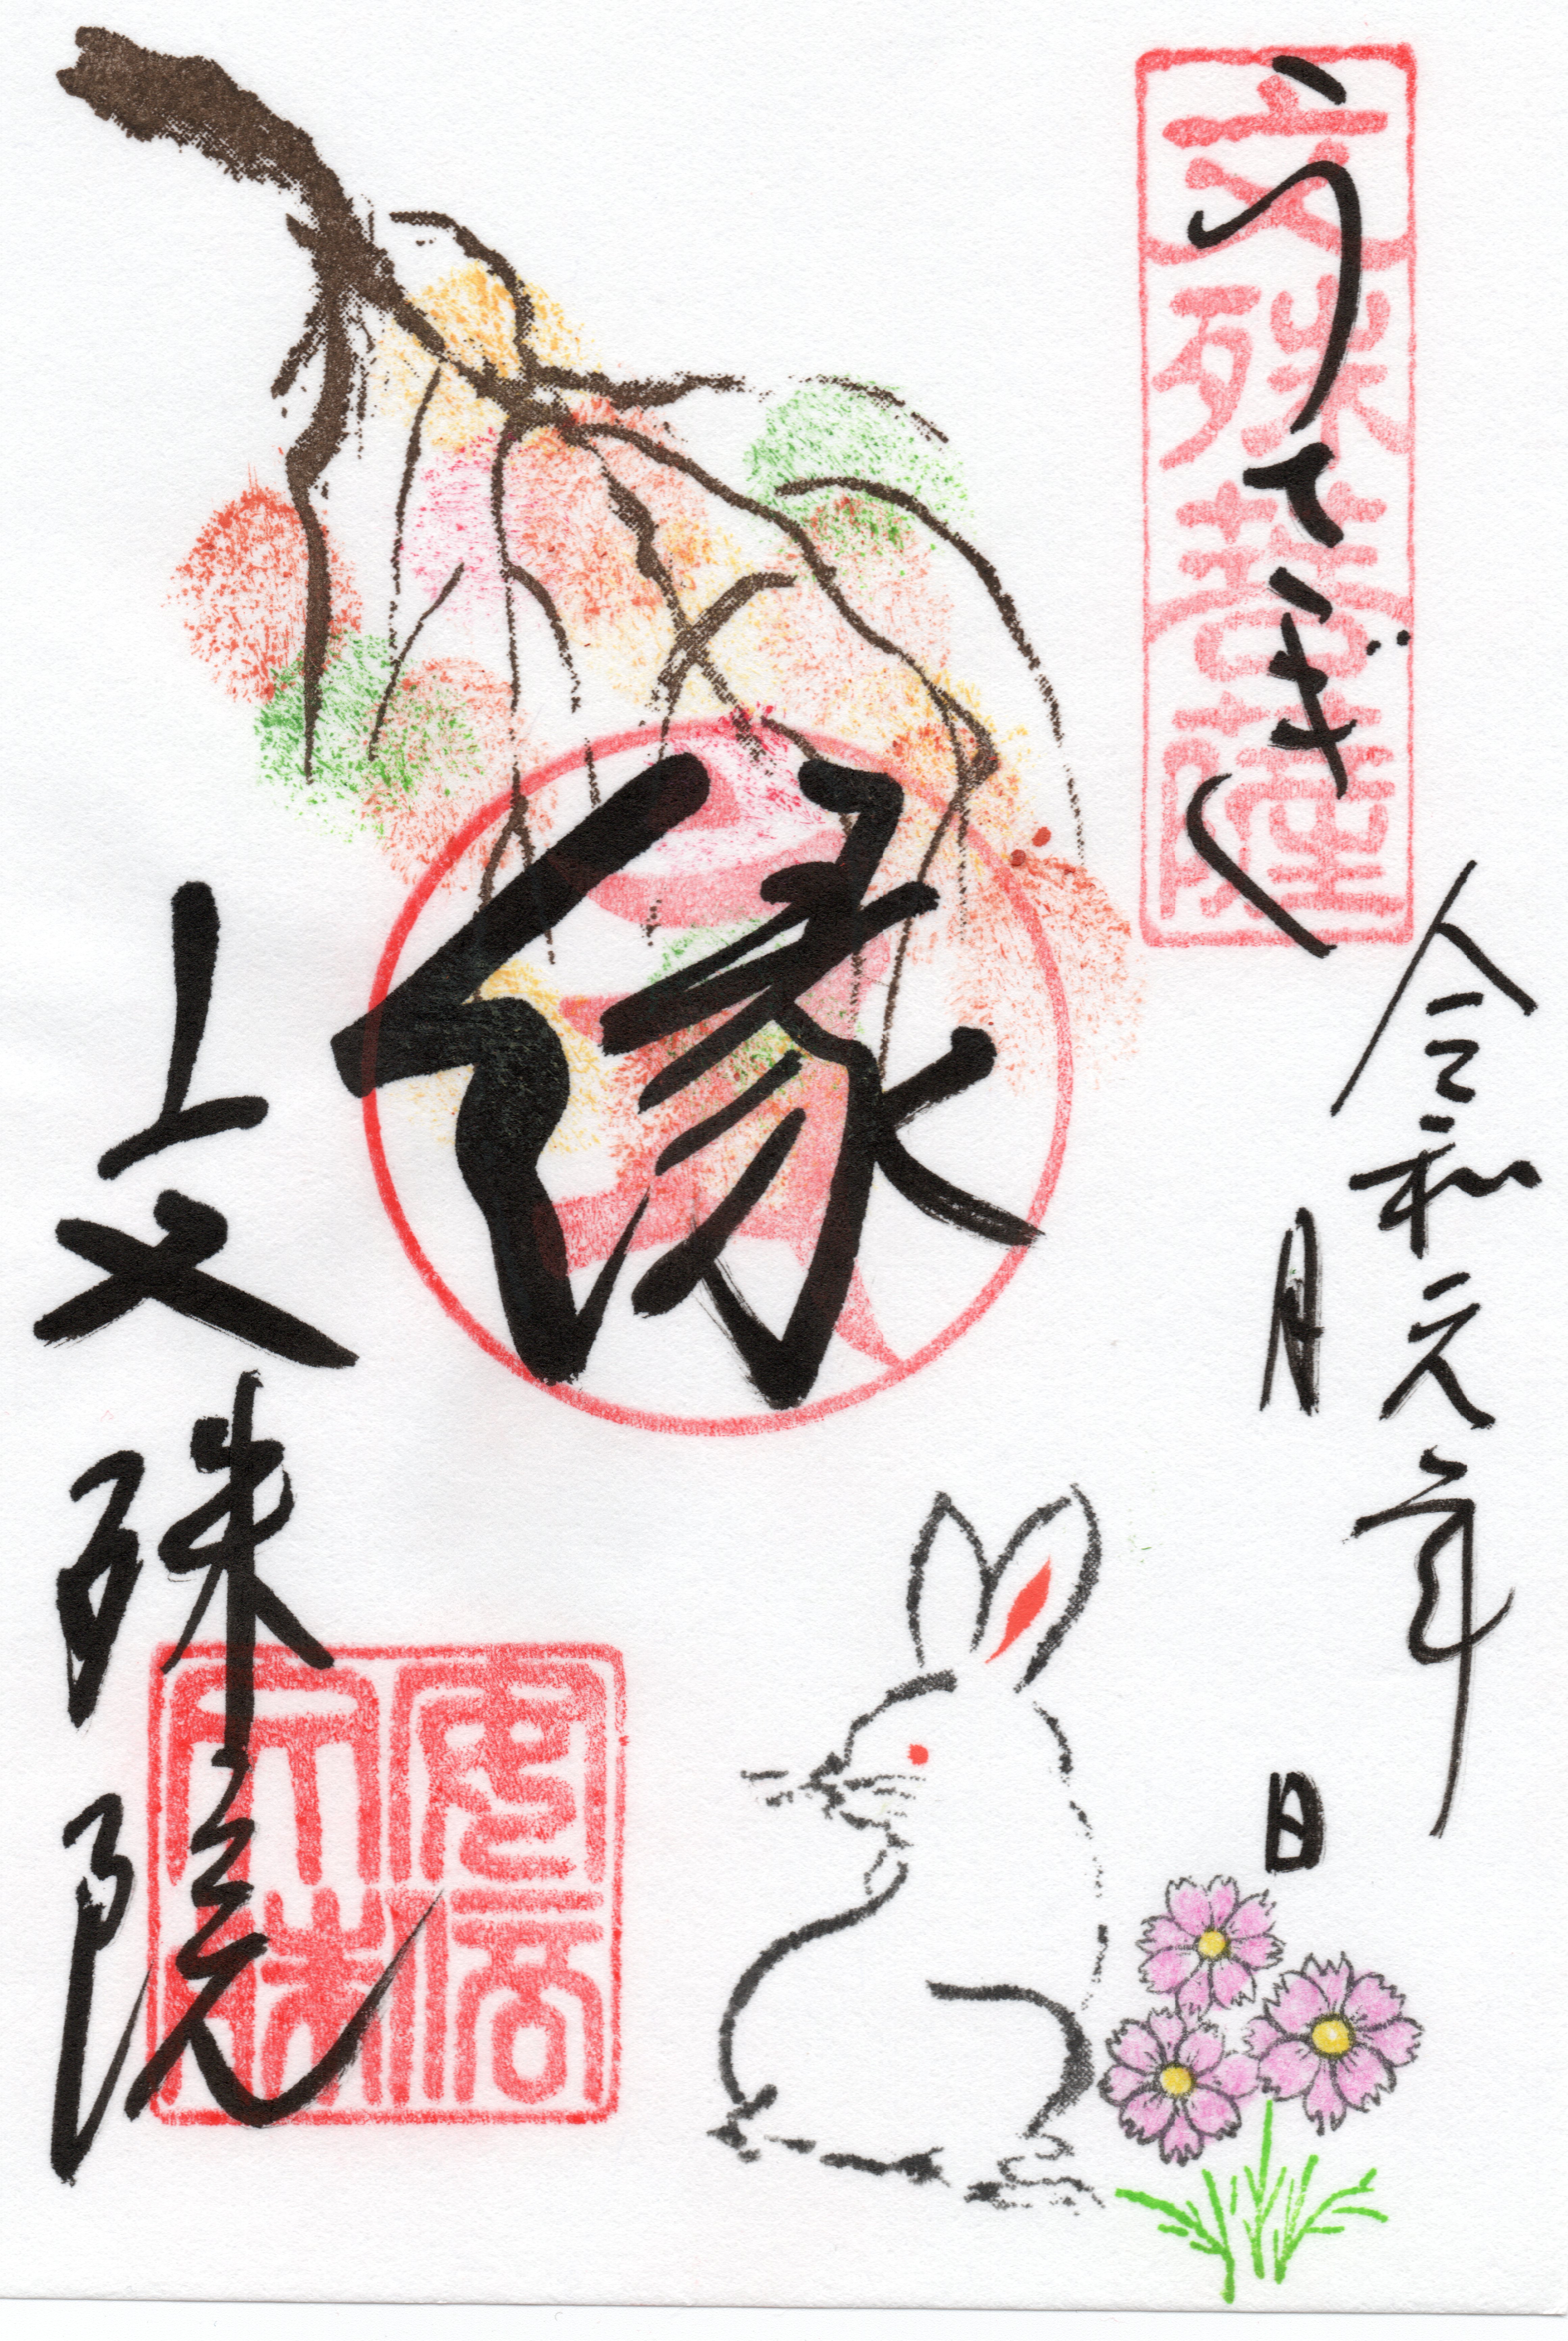 文殊菩薩
うてぎく
令和元年
月 日
縁
文殊院